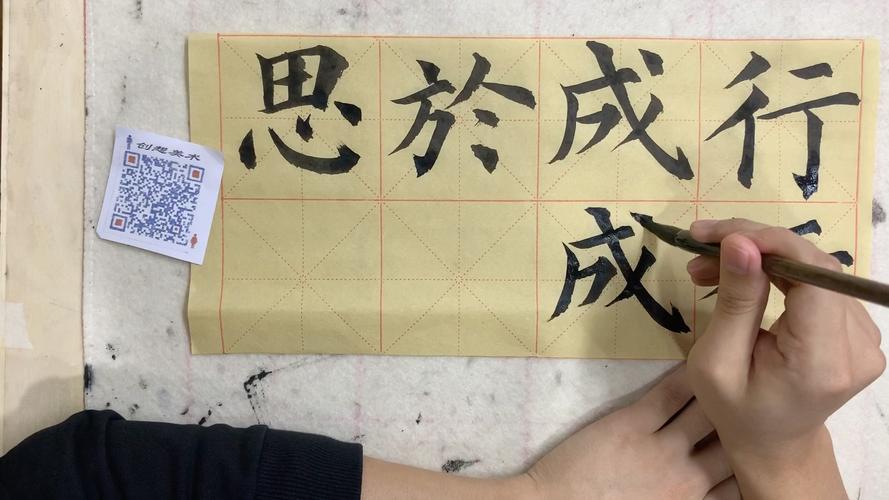 行成於思
成
创想美术